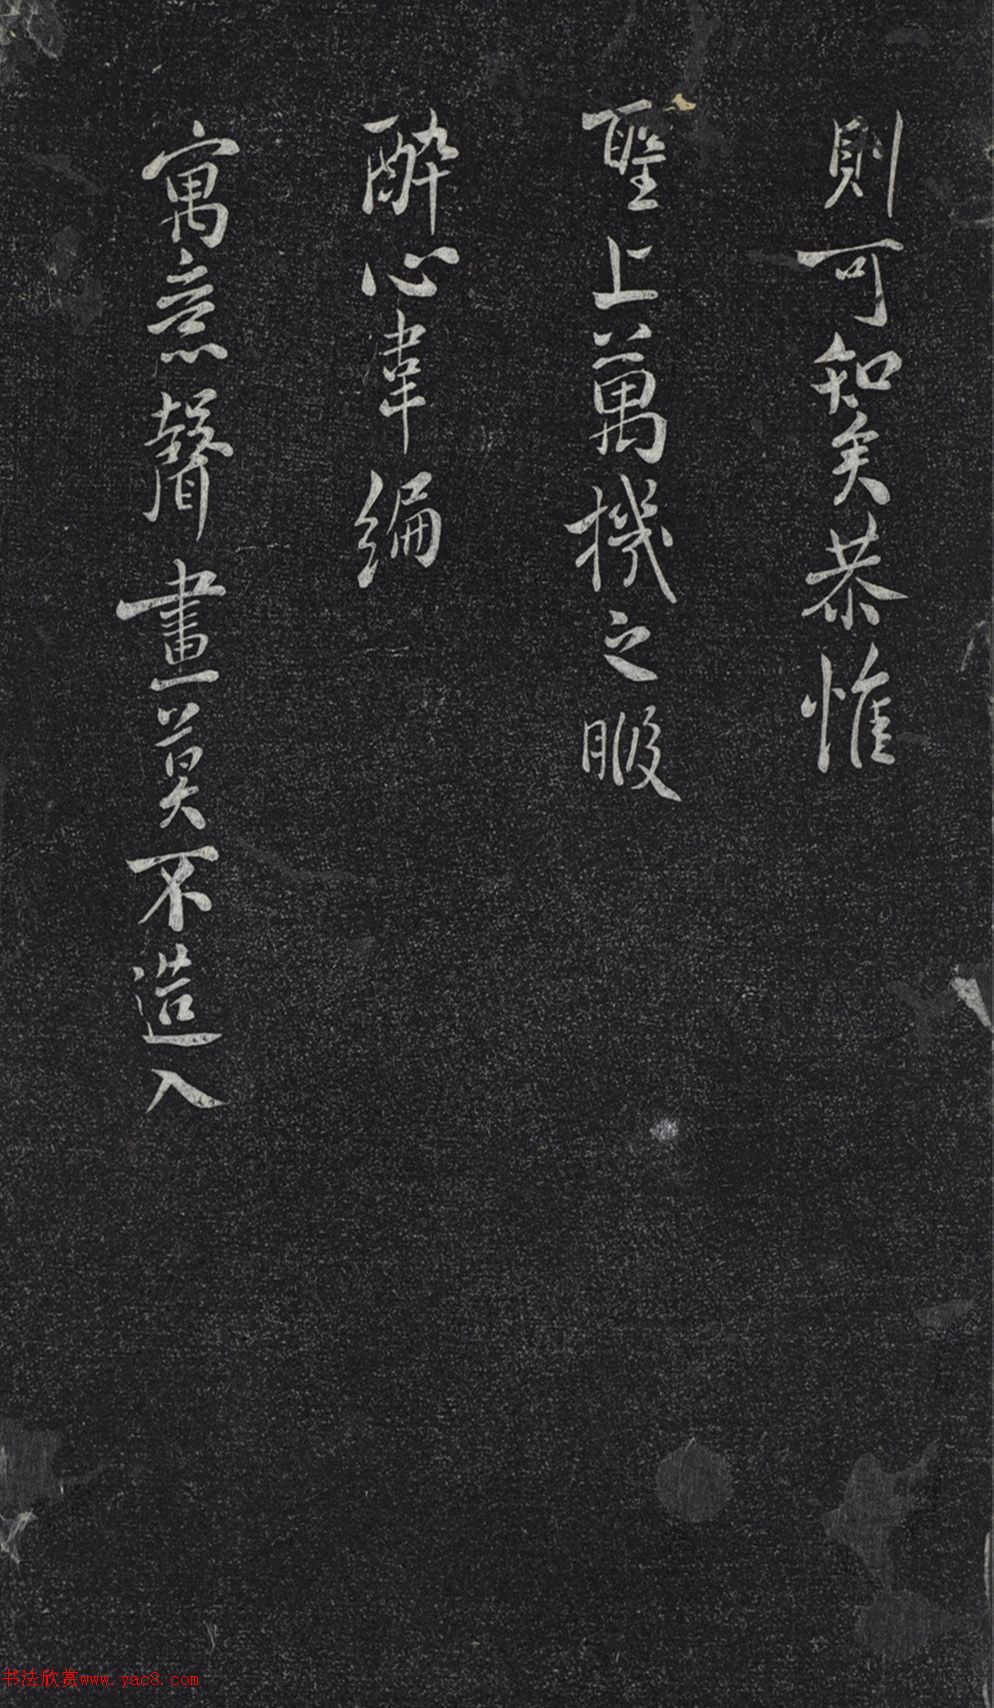 則可知矣恭惟
聖上萬機之暇
醉心韋編
寓意聲畫莫不造入
书法欣赏www.yac8.com